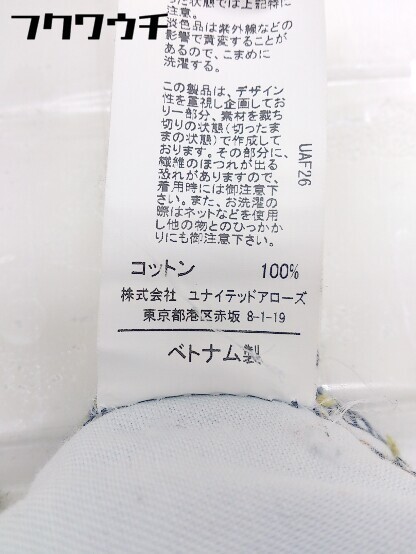 フクワウチ
った状態では上記特に
注意。
淡色品は紫外線などの
影響で黄変することが
あるので、こまめに
洗濯する。
この製品は、デザイン
性を重視し企画してお
り一部分、素材を裁ち
切りの状態(切ったま
まの状態)で作成して
おります。その部分に、
繊維のほつれが出る
恐れがありますので、
着用時には御注意下
さい。また、お洗濯の
際はネットなどを使用
し他の物とのひっかか
りにも御注意下さい。
UAF26
コットン 100%
株式会社 ユナイテッドアローズ
東京都港区赤坂 8-1-19
ベトナム製